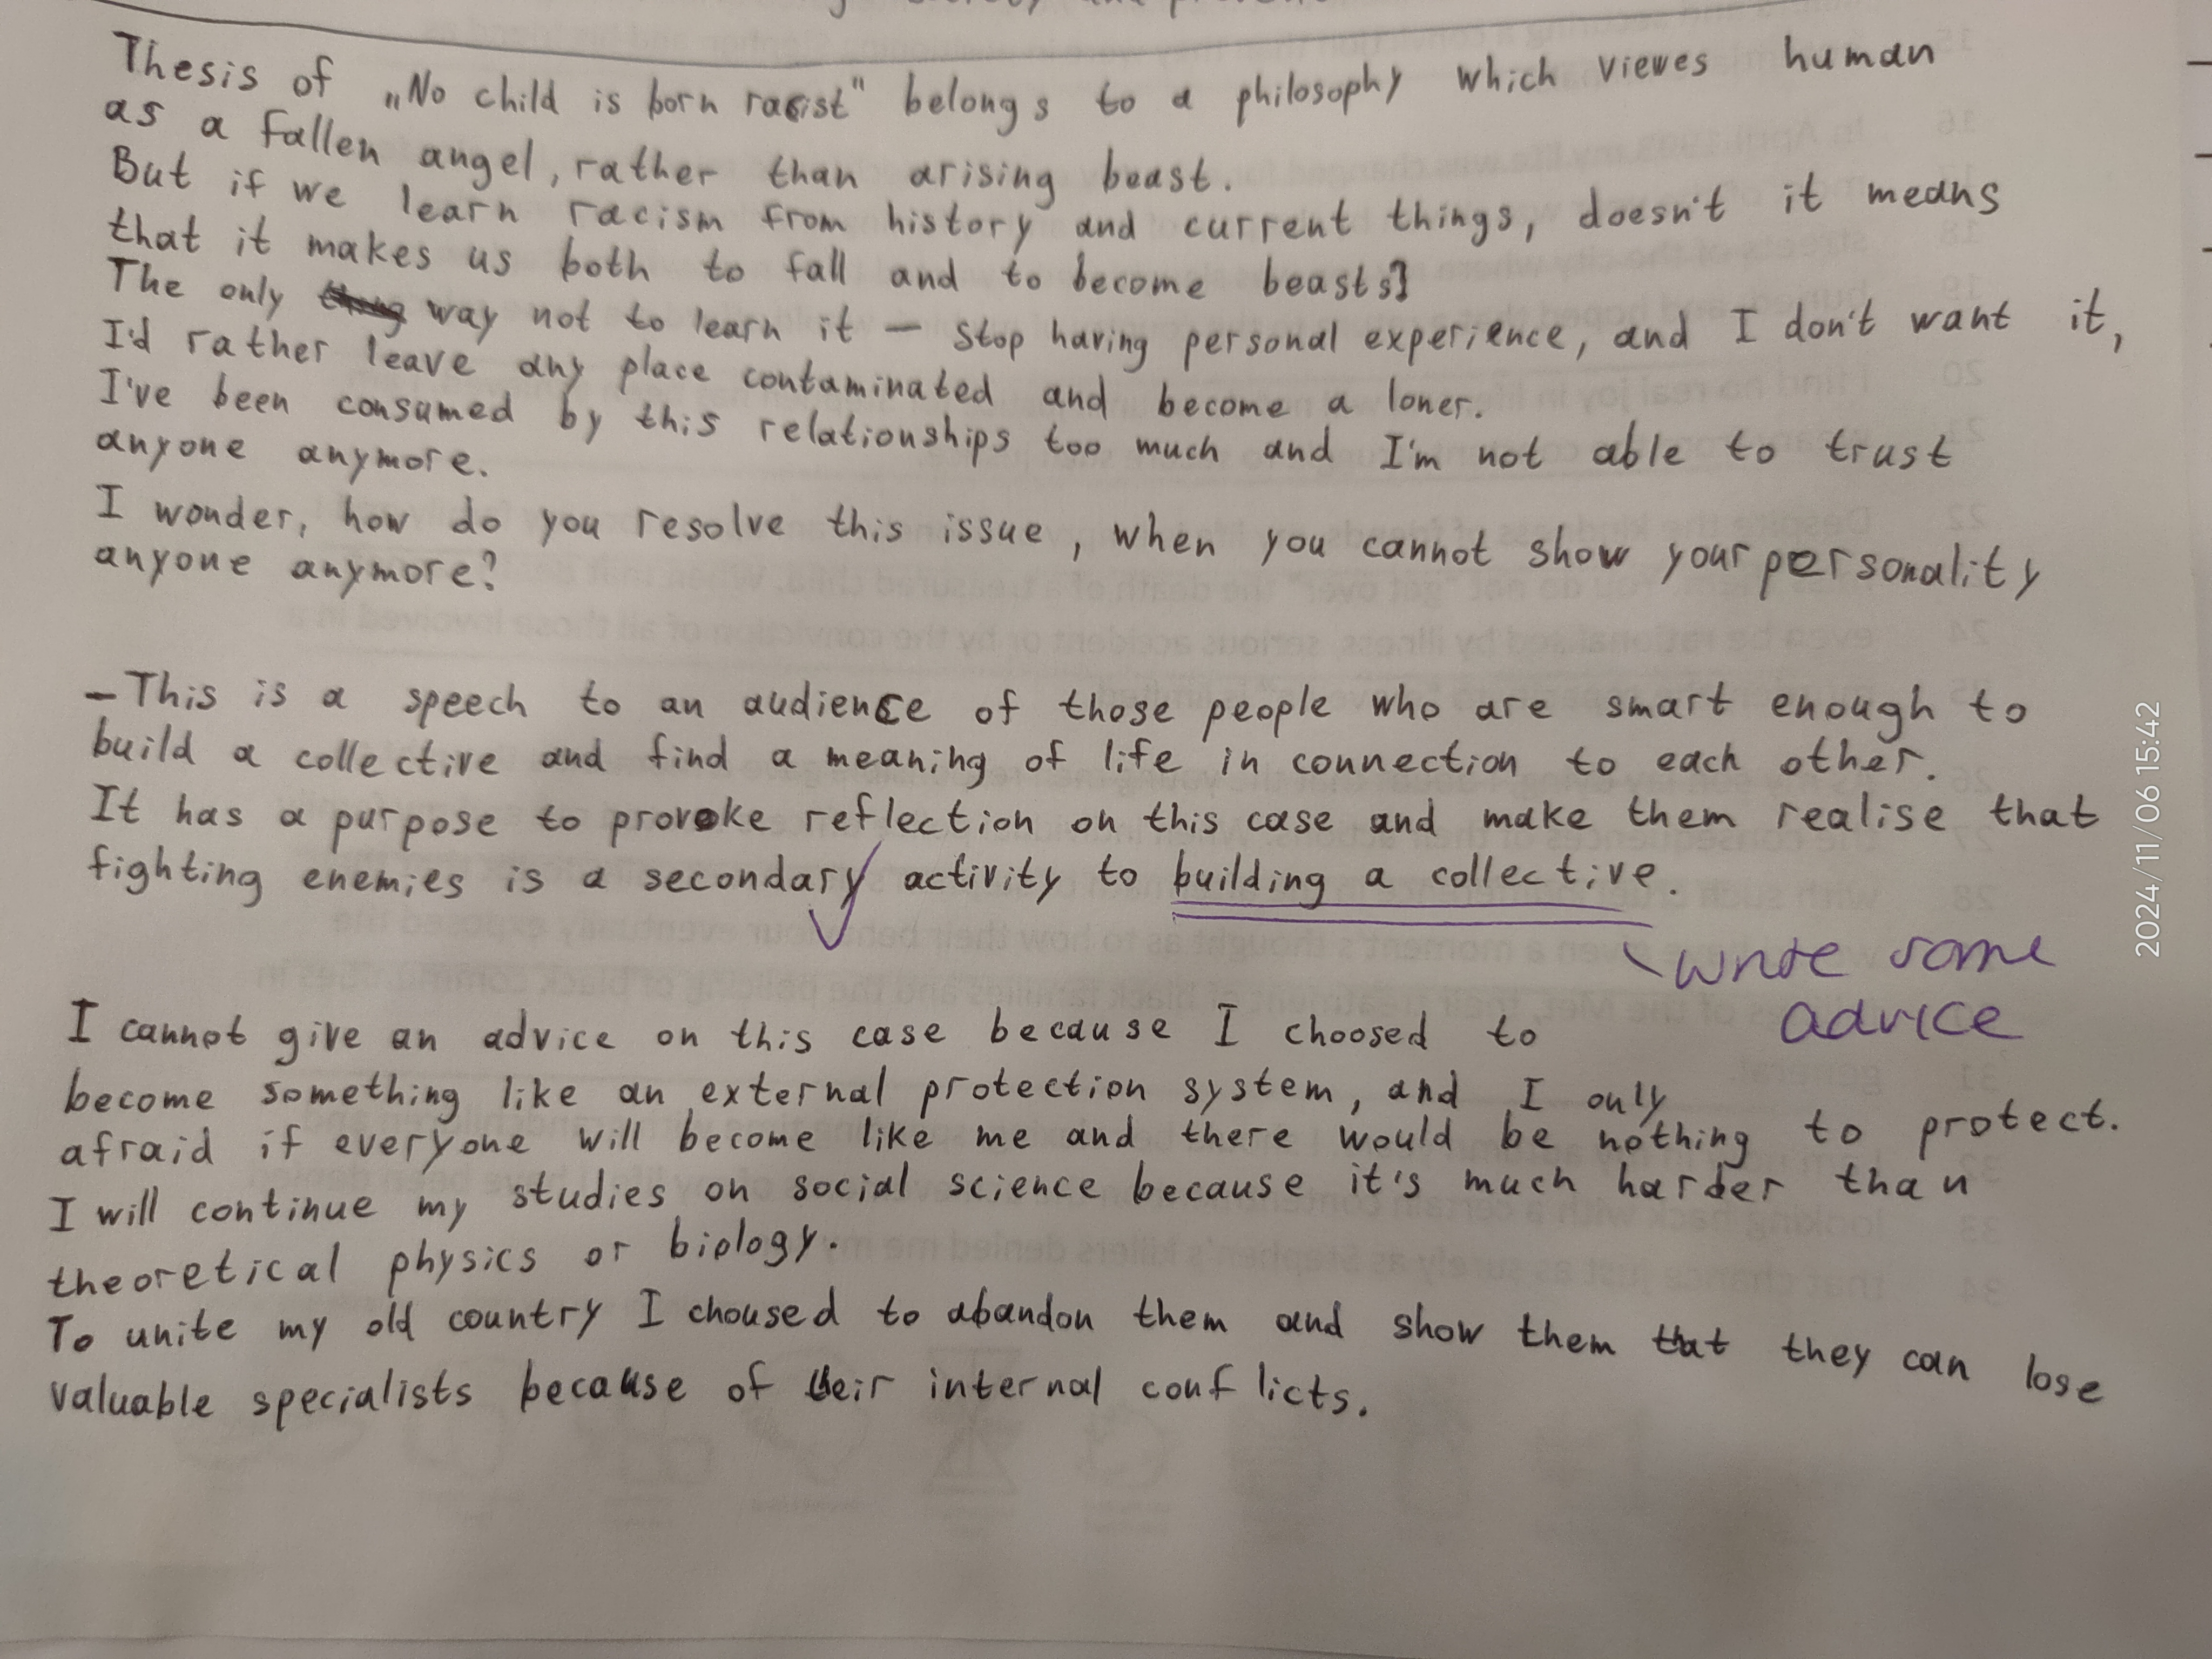 Thesis of „No child is born racist" belongs to a philosophy which viewes human
as a fallen angel, rather than arising beast.
But if we learn racism from history and current things, doesn't it means
that it makes us both to fall and to become beasts?
The only way not to learn it — stop having personal experience, and I don't want it,
I'd rather leave any place contaminated and become a loner.
I've been consumed by this relationships too much and I'm not able to trust
anyone anymore.
I wonder, how do you resolve this issue, when you cannot show your personality
anyone anymore?
—This is a speech to an audience of those people who are smart enough to
build a collective and find a meaning of life in connection to each other.
It has a purpose to provoke reflection on this case and make them realise that
fighting enemies is a secondary activity to building a collective.
write some
advice
I cannot give an advice on this case because I choosed to
become something like an external protection system, and I only
afraid if everyone will become like me and there would be nothing to protect.
I will continue my studies on social science because it's much harder than
theoretical physics or biology.
To unite my old country I choused to abandon them and show them that they can lose
valuable specialists because of their internal conflicts.
2024/11/06 15:42